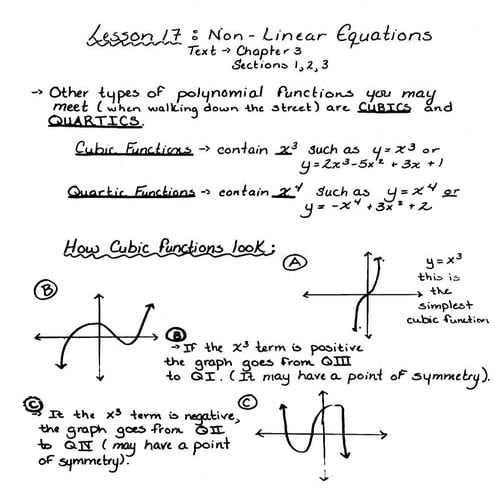 Lesson 17 : Non-Linear Equations
Text → Chapter 3
Sections 1, 2, 3
→ Other types of polynomial functions you may
meet (when walking down the street) are CUBICS and
QUARTICS.
Cubic Functions → contain x³ such as y = x³ or
y = 2x³ - 5x² + 3x + 1
Quartic Functions → contain x⁴ such as y = x⁴ or
y = -x⁴ + 3x² + 2
How Cubic functions look:
A
y = x³
this is
the
simplest
cubic function
B
B
→ If the x³ term is positive
the graph goes from QIII
to QI. (It may have a point of symmetry).
C
→ It the x³ term is negative,
the graph goes from QII
to QIV (may have a point
of symmetry).
C